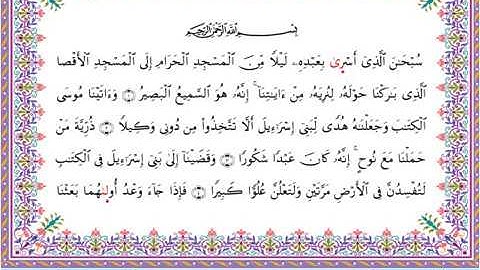 بِسْمِ اللَّهِ الرَّحْمَٰنِ الرَّحِيمِ
سُبْحَٰنَ ٱلَّذِىٓ أَسْرَىٰ بِعَبْدِهِۦ لَيْلًا مِّنَ ٱلْمَسْجِدِ ٱلْحَرَامِ إِلَى ٱلْمَسْجِدِ ٱلْأَقْصَا
ٱلَّذِى بَٰرَكْنَا حَوْلَهُۥ لِنُرِيَهُۥ مِنْ ءَايَٰتِنَآ ۚ إِنَّهُۥ هُوَ ٱلسَّمِيعُ ٱلْبَصِيرُ ۝١ وَءَاتَيْنَا مُوسَى
ٱلْكِتَٰبَ وَجَعَلْنَٰهُ هُدًى لِّبَنِىٓ إِسْرَٰٓءِيلَ أَلَّا تَتَّخِذُوا۟ مِن دُونِى وَكِيلًا ۝٢ ذُرِّيَّةَ مَنْ
حَمَلْنَا مَعَ نُوحٍ ۚ إِنَّهُۥ كَانَ عَبْدًا شَكُورًا ۝٣ وَقَضَيْنَآ إِلَىٰ بَنِىٓ إِسْرَٰٓءِيلَ فِى ٱلْكِتَٰبِ
لَتُفْسِدُنَّ فِى ٱلْأَرْضِ مَرَّتَيْنِ وَلَتَعْلُنَّ عُلُوًّا كَبِيرًا ۝٤ فَإِذَا جَآءَ وَعْدُ أُولَىٰهُمَا بَعَثْنَا